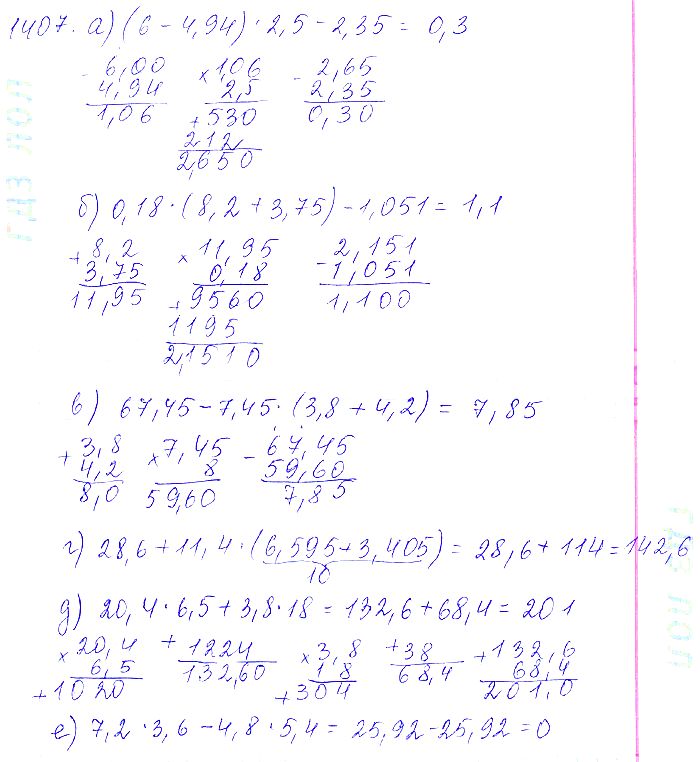 1407. а) (6 - 4,94) · 2,5 - 2,35 = 0,3
- 6,00 × 1,06 - 2,65
4,94 2,5 2,35
1,06 + 530 0,30
212
2,650
б) 0,18 · (8,2 + 3,75) - 1,051 = 1,1
+ 8,2 × 11,95 - 2,151
3,75 0,18 1,051
11,95 + 9560 1,100
1195
2,1510
в) 67,45 - 7,45 · (3,8 + 4,2) = 7,85
+ 3,8 × 7,45 - 67,45
4,2 8 59,60
8,0 59,60 7,85
г) 28,6 + 11,4 · (6,595 + 3,405) = 28,6 + 114 = 142,6
10
д) 20,4 · 6,5 + 3,8 · 18 = 132,6 + 68,4 = 201
× 20,4 + 1224 × 3,8 + 38 + 132,6
6,5 132,60 18 68,4 68,4
+ 1020 + 304 201,0
е) 7,2 · 3,6 - 4,8 · 5,4 = 25,92 - 25,92 = 0